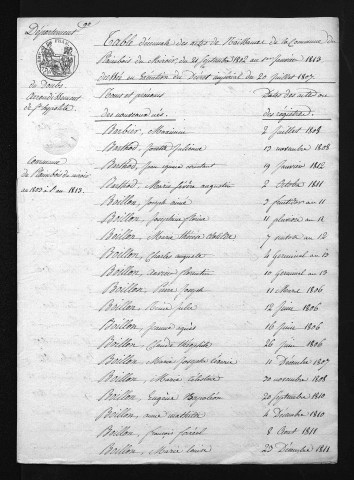 Département
du Doubs
Arrondissement
de St hypolite
Commune
du Plaimbois du miroir
an 1803 à l'an 1813.
Table décennale des actes de Naissance de la Commune du
Plaimbois du Miroir, du 21 Septembre 1802 au 1er Janvier 1813
dressée en Exécution du Décret impérial du 20 Juillet 1807.
Noms et prénoms
des nouveaux nés.
Dates des actes ou
des régistres.
Barbier, 2 Juillet 1808
Barthod, Julienne 13 novembre 1808
Barthod, jean 19 Janvier 1812
Barthod, Marie auguste 2 Octobre 1811
Boillon, Joseph aimé 3 fructidor an 11
Boillon, Josephine 11 pluviose an 11
Boillon, Marie Thérèse Clotilde 7 an 12
Boillon, Charles auguste 4 Germinal an 13
Boillon, 10 Germinal an 13
Boillon, Pierre Joseph 11 1806
Boillon, Julie 12 Juin 1806
Boillon, agnès 16 Juin 1806
Boillon, Claude 26 Juin 1806
Boillon, Marie Josephe 11 Décembre 1807
Boillon, Marie Célestine 20 novembre 1808
Boillon, Eugène Napoléon 20 Septembre 1810
Boillon, anne mathilde 4 Décembre 1810
Boillon, françois 8 Aout 1811
Boillon, Marie Louise 27 Décembre 1811